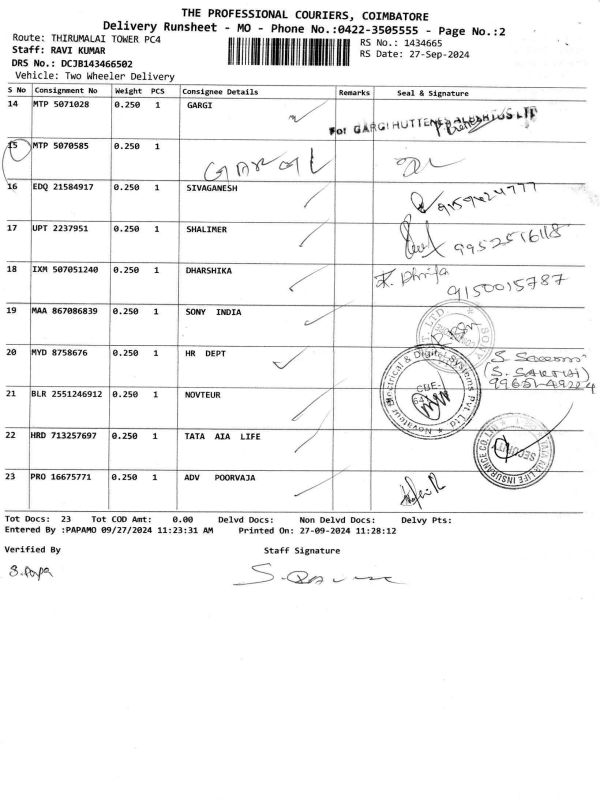 THE PROFESSIONAL COURIERS, COIMBATORE
Delivery Runsheet - MO - Phone No.:0422-3505555 - Page No.:2
Route: THIRUMALAI TOWER PC4
RS No.: 1434665
Staff: RAVI KUMAR
RS Date: 27-Sep-2024
DRS No.: DCJB143466502
Vehicle: Two Wheeler Delivery
S No Consignment No Weight PCS Consignee Details Remarks Seal & Signature
14 MTP 5071028 0.250 1 GARGI
For GARGI HUTTENES
15 MTP 5070585 0.250 1
GARGI
16 EDQ 21584917 0.250 1 SIVAGANESH
9159424777
17 UPT 2237951 0.250 1 SHALIMER
9952516118
18 IXM 507051240 0.250 1 DHARSHIKA
9150015787
19 MAA 867086839 0.250 1 SONY INDIA
20 MYD 8758676 0.250 1 HR DEPT
(S. SAKTHI)
21 BLR 2551246912 0.250 1 NOVTEUR
Novateur Electrical & Digital Systems Pvt. Ltd
CBE-
22 HRD 713257697 0.250 1 TATA AIA LIFE
TATA AIA LIFE INSURANCE CO. LTD
SECURITY
23 PRO 16675771 0.250 1 ADV POORVAJA
Tot Docs: 23 Tot COD Amt: 0.00 Delvd Docs: Non Delvd Docs: Delvy Pts:
Entered By :PAPAMO 09/27/2024 11:23:31 AM Printed On: 27-09-2024 11:28:12
Verified By Staff Signature